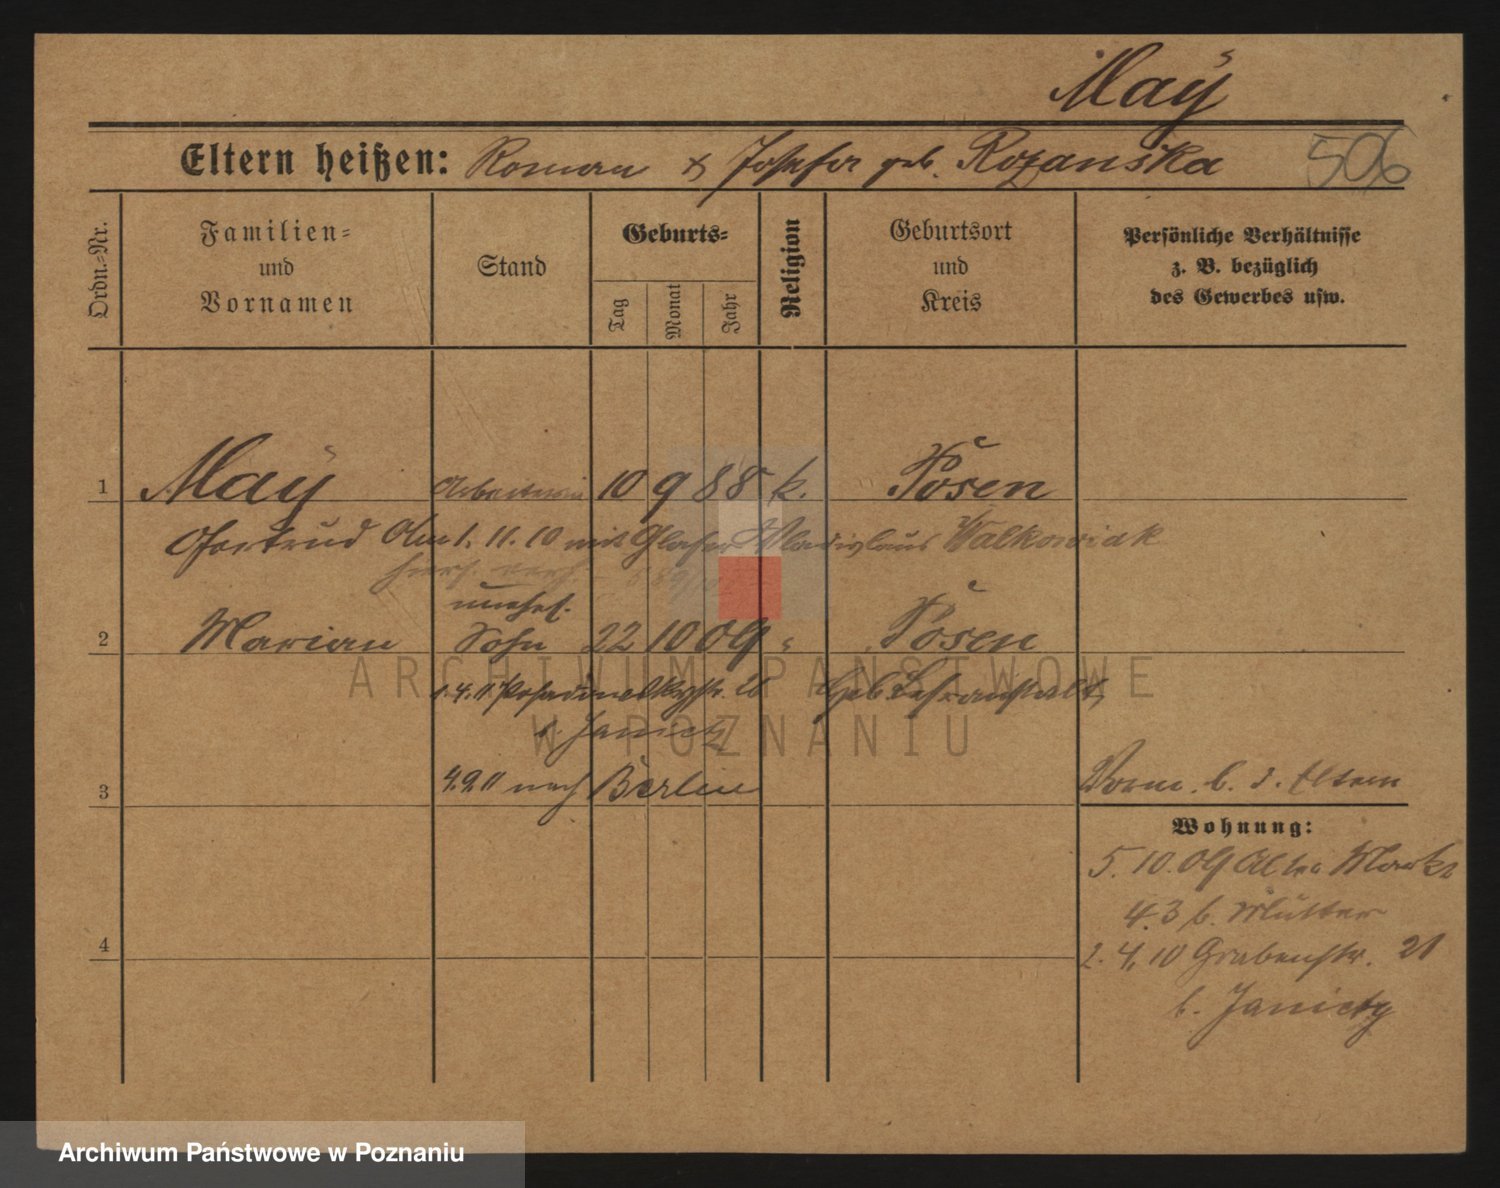 Maÿ
Eltern heißen: Roman & Josefa geb. Rozanska 506
Ordn.-Nr. Familien- und Vornamen Stand Geburts- Tag Monat Jahr Religion Geburtsort und Kreis Persönliche Verhältnisse z. B. bezüglich des Gewerbes usw.
1 Maÿ Arbeiterin 10 9 88 k. Posen
Gertrud 1. 11. 10 mit Glaser Wladislaus Walkowiak
unehel.
2 Marian Sohn 22 10 09 " Posen
1.4.11 str. 26 Geb Lehranstalt
b. Janietz
3 4.9.11 nach Berlin Vorm. b. d. Eltern
Wohnung:
5. 10. 09 Alter Markt
43 b. Mutter
4
2. 4. 10 Grabenstr. 21
b. Janietz
ARCHIWUM PAŃSTWOWE
W POZNANIU
Archiwum Państwowe w Poznaniu